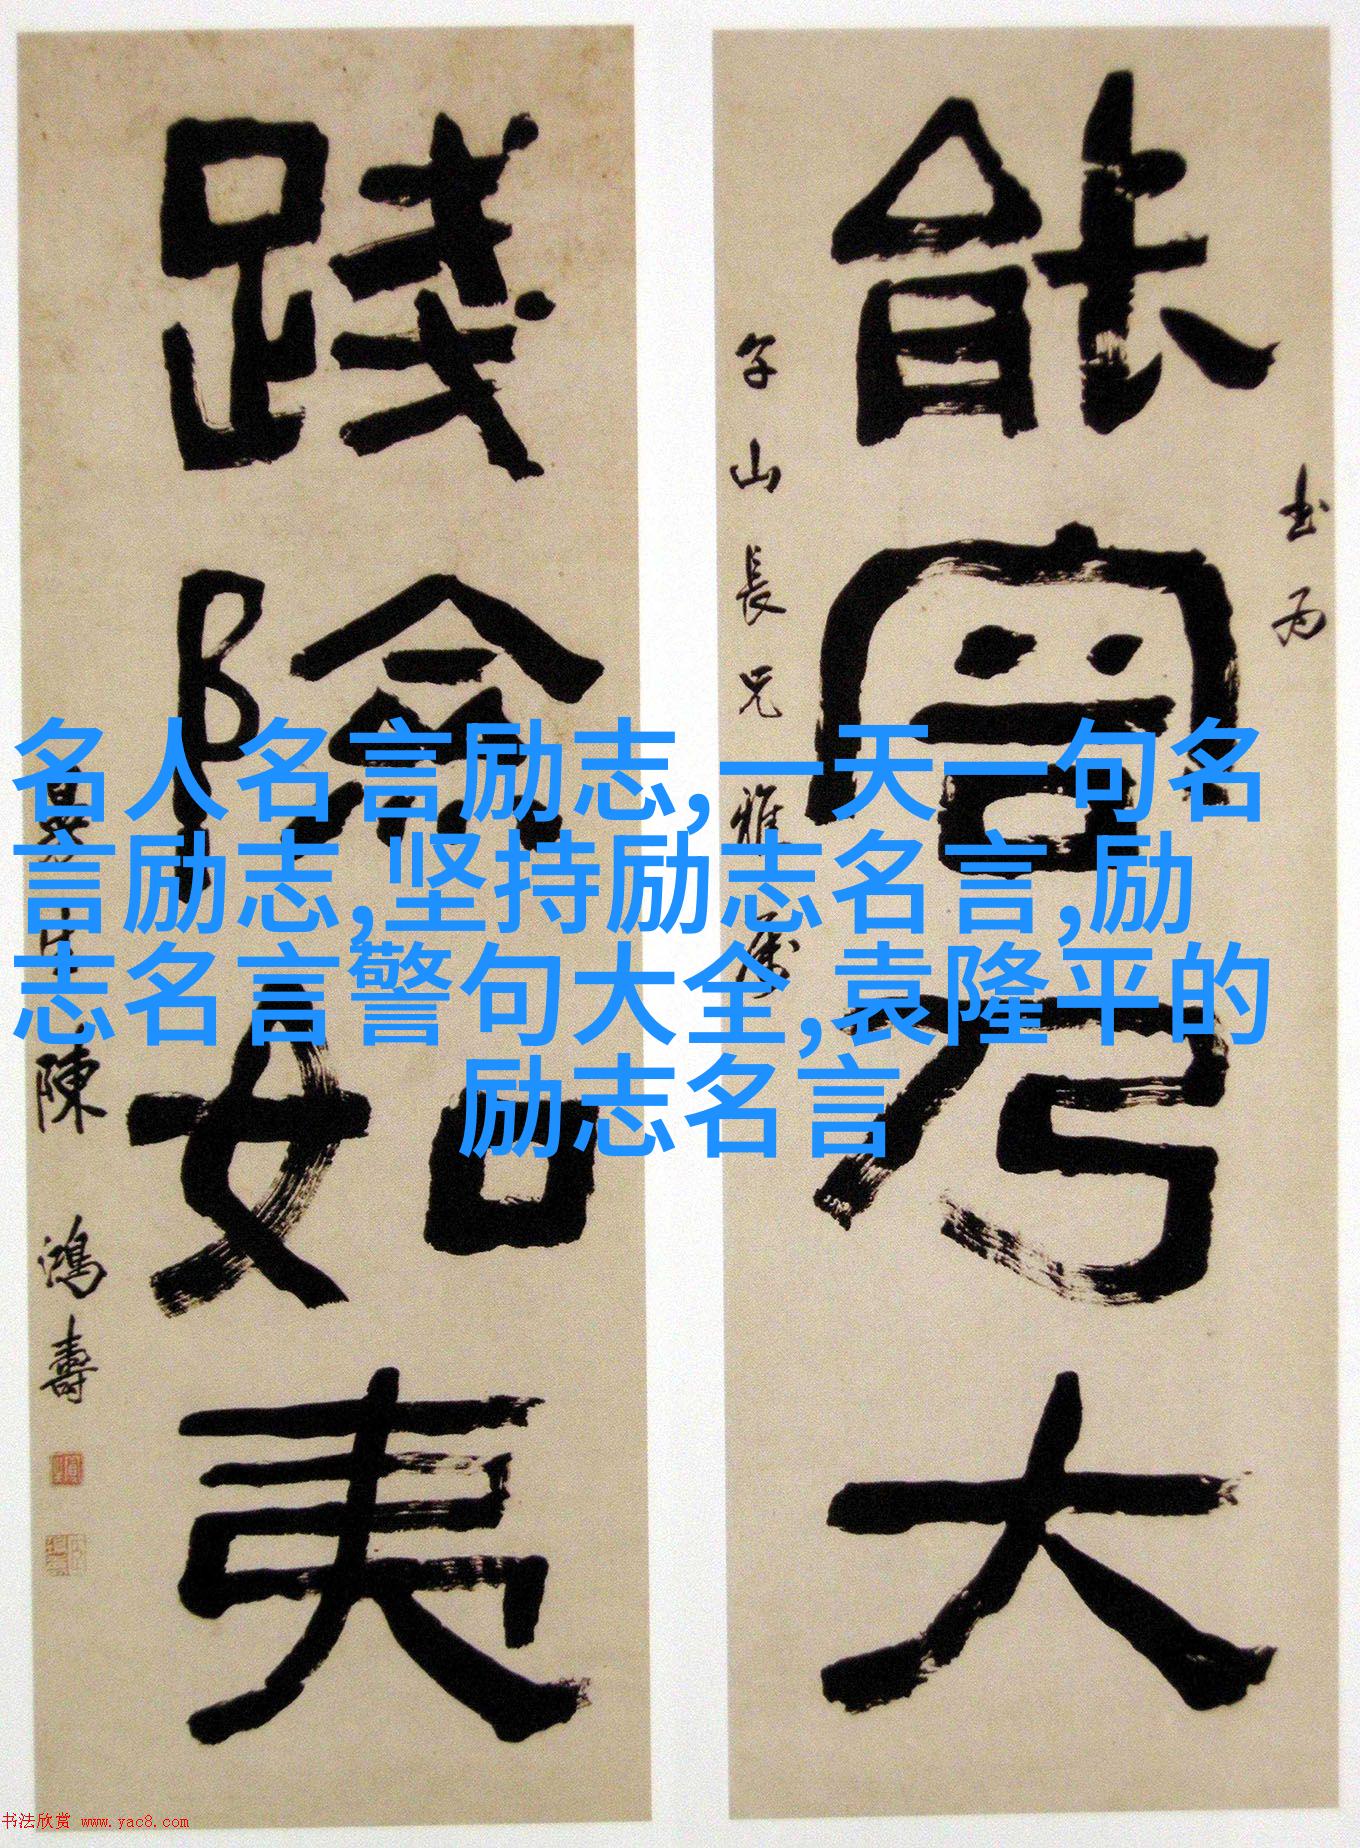 能容乃大
書為
山長兄雅屬
踐險如夷
曼生陳鴻壽
名人名言励志,一天一句名
言励志,坚持励志名言,励
志名言警句大全,袁隆平的
励志名言
书法欣赏 www.yac8.com